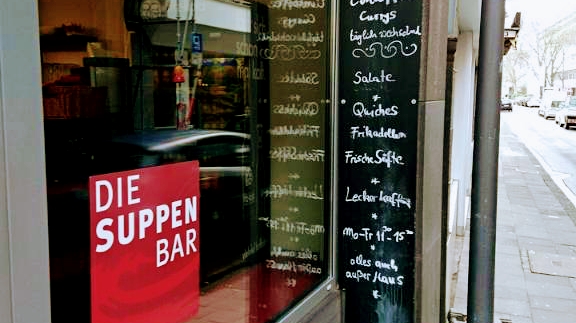 DIE
SUPPEN
BAR
Currys
täglich wechselnd
Salate
*
Quiches
Frikadellen
Frische Säfte
*
Lecker Kaffee
*
Mo-Fr 11³⁰-15³⁰
*
alles auch
außer Haus
*